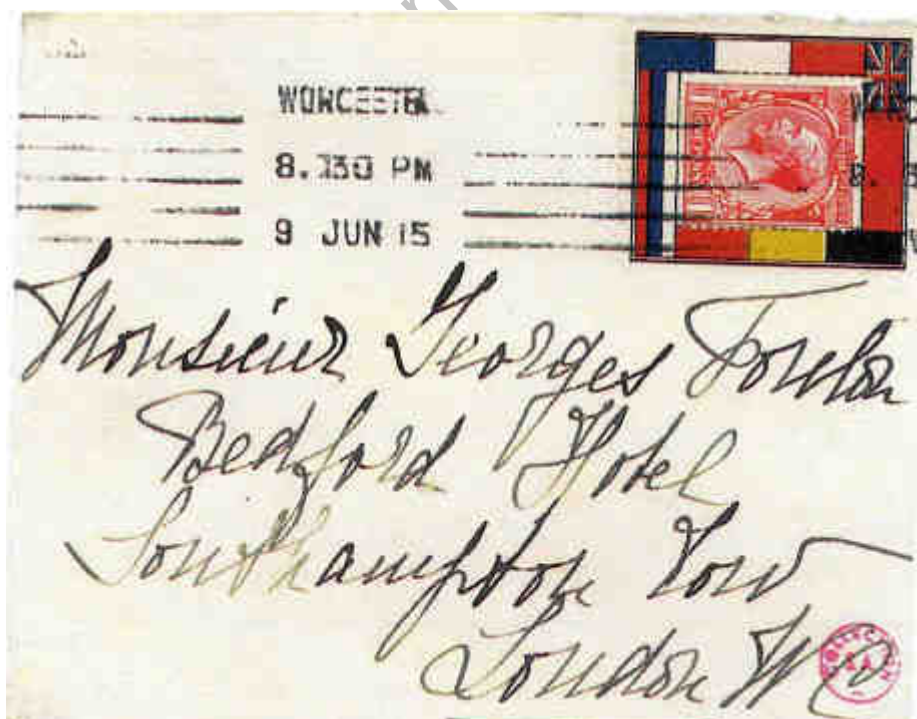 WORCESTER
8.30 PM
9 JUN 15
Monsieur Georges
Bedford Hotel
Southampton Row
London W C